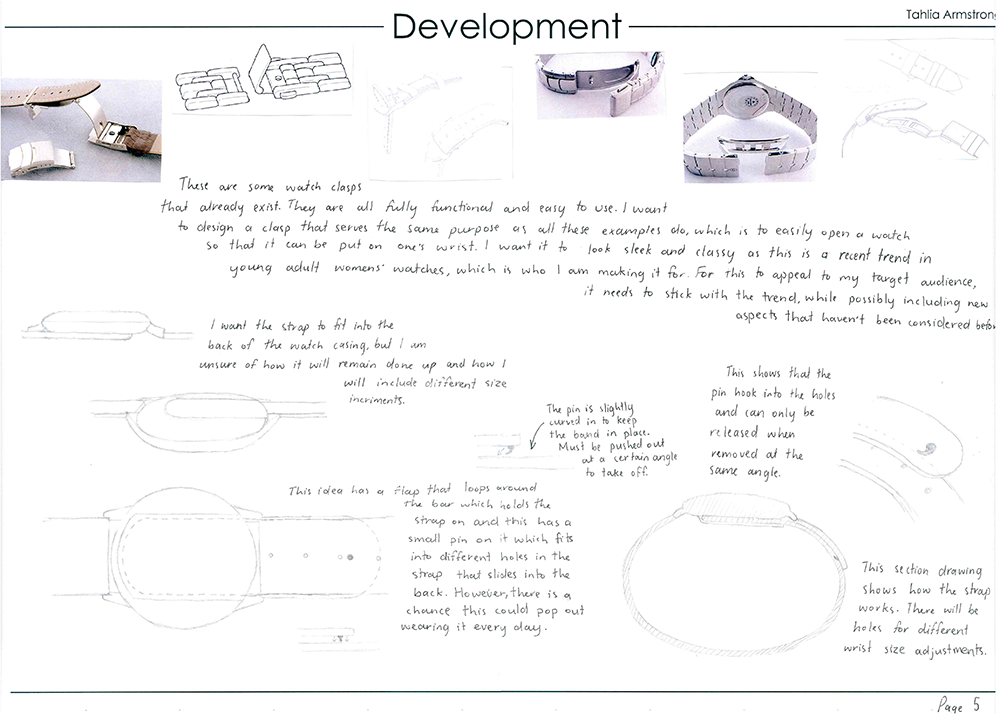 Development
Tahlia Armstrong
These are some watch clasps
that already exist. They are all fully functional and easy to use. I want
to design a clasp that serves the same purpose as all these examples do, which is to easily open a watch
so that it can be put on one's wrist. I want it to look sleek and classy as this is a recent trend in
young adult womens' watches, which is who I am making it for. For this to appeal to my target audience,
it needs to stick with the trend, while possibly including new
aspects that haven't been considered before
I want the strap to fit into the
back of the watch casing, but I am
unsure of how it will remain done up and how I
will include different size
incriments.
The pin is slightly
curved in to keep
the band in place.
Must be pushed out
at a certain angle
to take off.
This shows that the
pin hook into the holes
and can only be
released when
removed at the
same angle.
This idea has a flap that loops around
the bar which holds the
strap on and this has a
small pin on it which fits
into different holes in the
strap that slides into the
back. However, there is a
chance this could pop out
wearing it every day.
This section drawing
shows how the strap
works. There will be
holes for different
wrist size adjustments.
Page 5